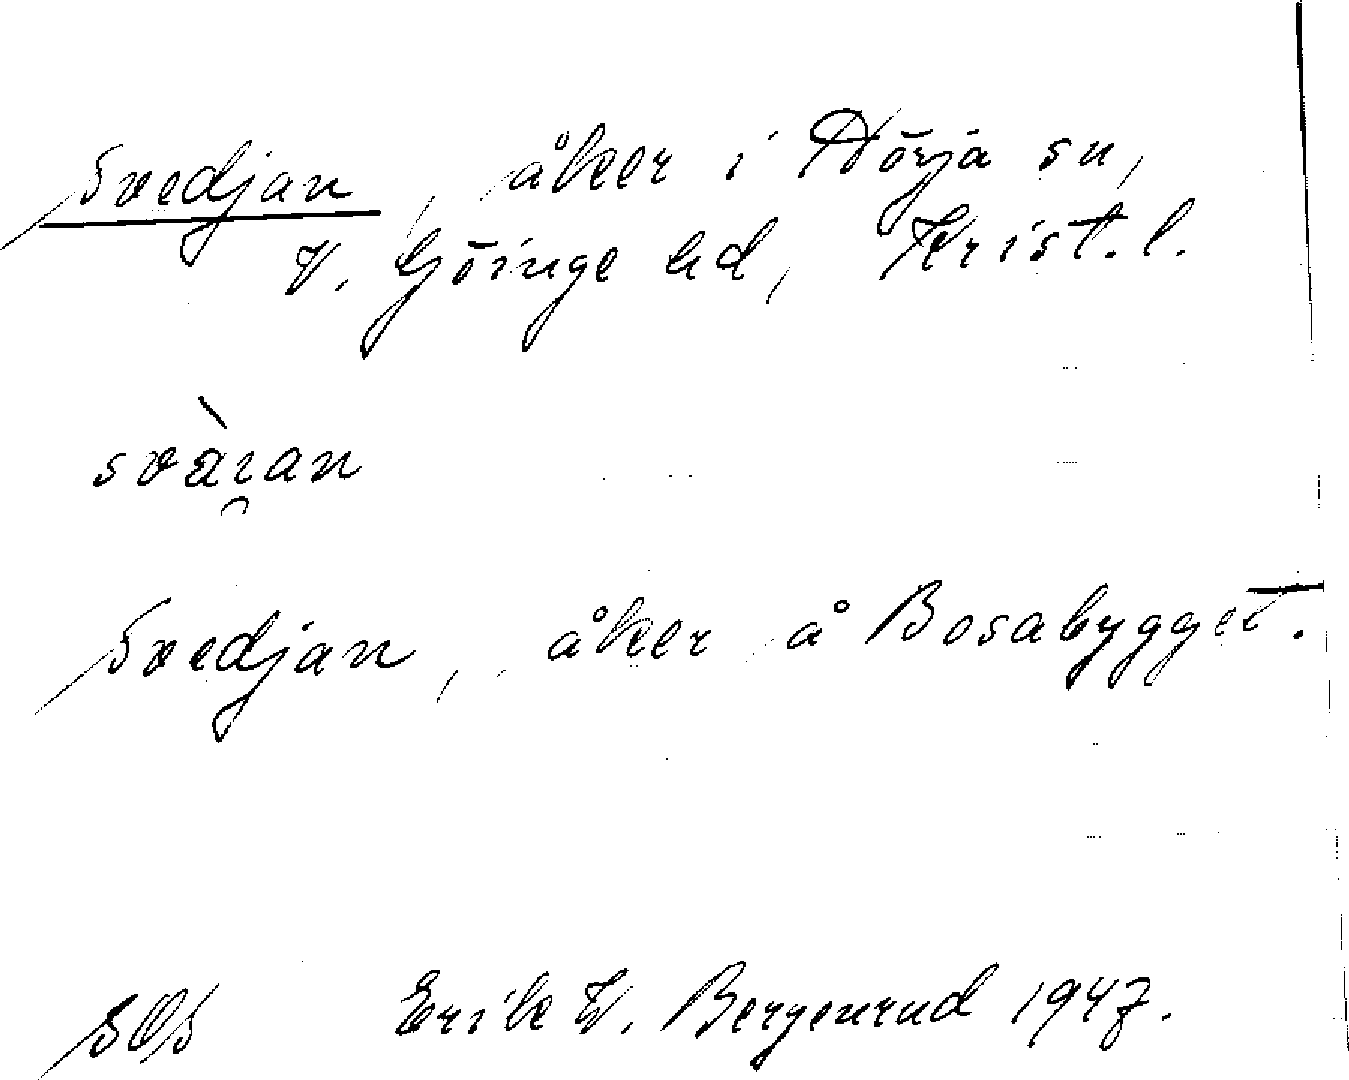 Svedjan, åker i Hörja sn,
V. Göinge hd, Krist. l.
Svedjan, åker å Bosabygget.
SOS Erik W. Bergenrud 1947.